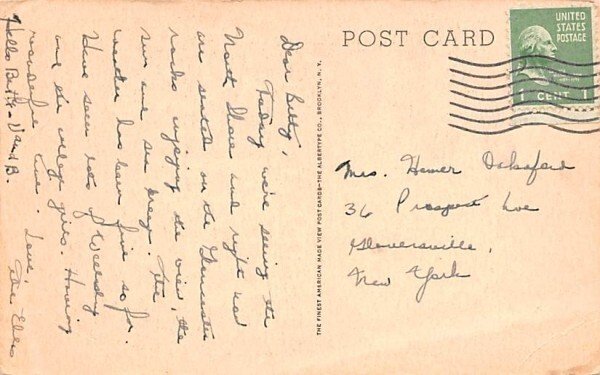 Dear Betty,
Today we're seeing the
North Shore and right now
are seated on the Gloucester
rocks enjoying the view, the
sun and sea breeze. The
weather has been fine so far.
Have seen lots of Wellesley
and six college girls. Having
wonderful time. Love,
Hello Betty - Vand B.
POST CARD
UNITED
STATES
POSTAGE
1 CENT 1
Mrs. Homer Oaksford
36 Prospect Ave
Gloversville,
New York
THE FINEST AMERICAN MADE VIEW POST CARDS—THE ALBERTYPE CO., BROOKLYN, N. Y.